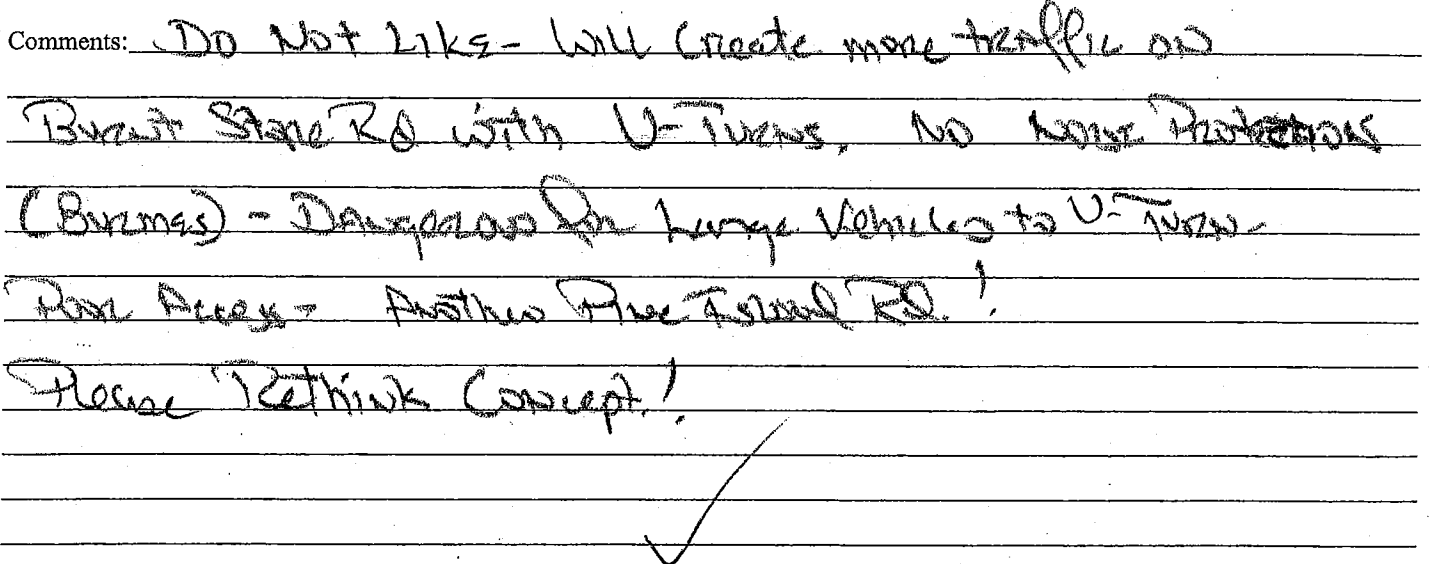 Comments: Do Not Like - Will Create more traffic on
Burnt Store Rd with U-Turns. No Noise Protections
(Burmes) - Dangerous for Large Vehicles to U-Turn -
Poor Access - Another Pine Island Rd.!
Please Rethink Concept!